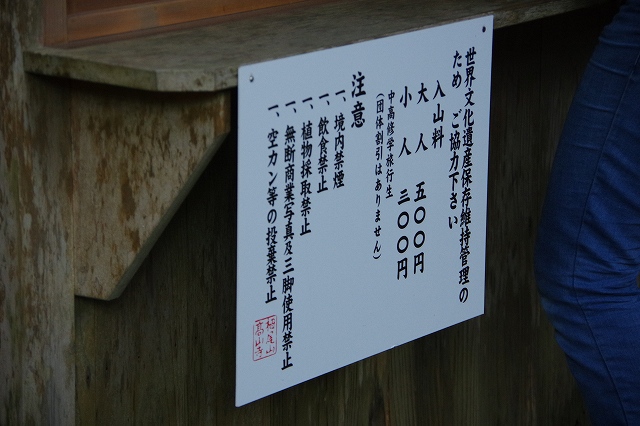 世界文化遺産保存維持管理の
ため ご協力下さい
入山料
大人 五〇〇円
小人 二〇〇円
中高修学旅行生
(団体割引はありません)
注意
一、境内禁煙
一、飲食禁止
一、植物採取禁止
一、無断商業写真及三脚使用禁止
一、空カン等の投棄禁止
栂尾山
高山寺